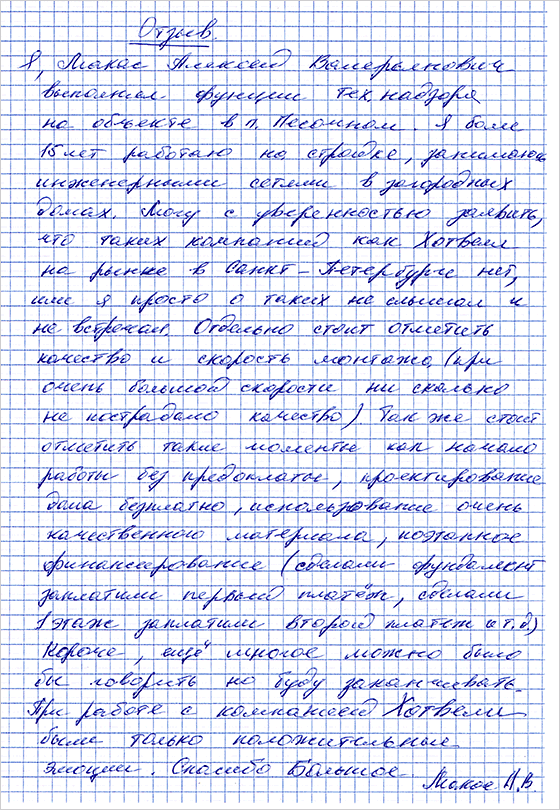 Отзыв
Я, Макас Алексей Валерьянович
выполнял функции тех. надзора
на объекте в п. Песочном. Я более
15 лет работаю на стройке, занимаюсь
инженерными сетями в загородных
домах. Могу с уверенностью заявить,
что таких компаний как Хотвелл
на рынке в Санкт-Петербурге нет,
или я просто о таких не слышал и
не встречал. Отдельно стоит отметить
качество и скорость монтажа, (при
очень большой скорости ни сколько
не пострадало качество) Так же стоит
отметить такие моменты как начало
работы без предоплаты, проектирование
дома бесплатно, использование очень
качественного материала, поэтапное
финансирование (сделали фундамент
заплатили первый платёж, сделали
1 этаж заплатили второй платеж и т.д)
Короче, ещё многое можно было
бы говорить но буду заканчивать.
При работе с компанией Хотвелл
были только положительные
эмоции. Спасибо Большое.
Макас А.В.